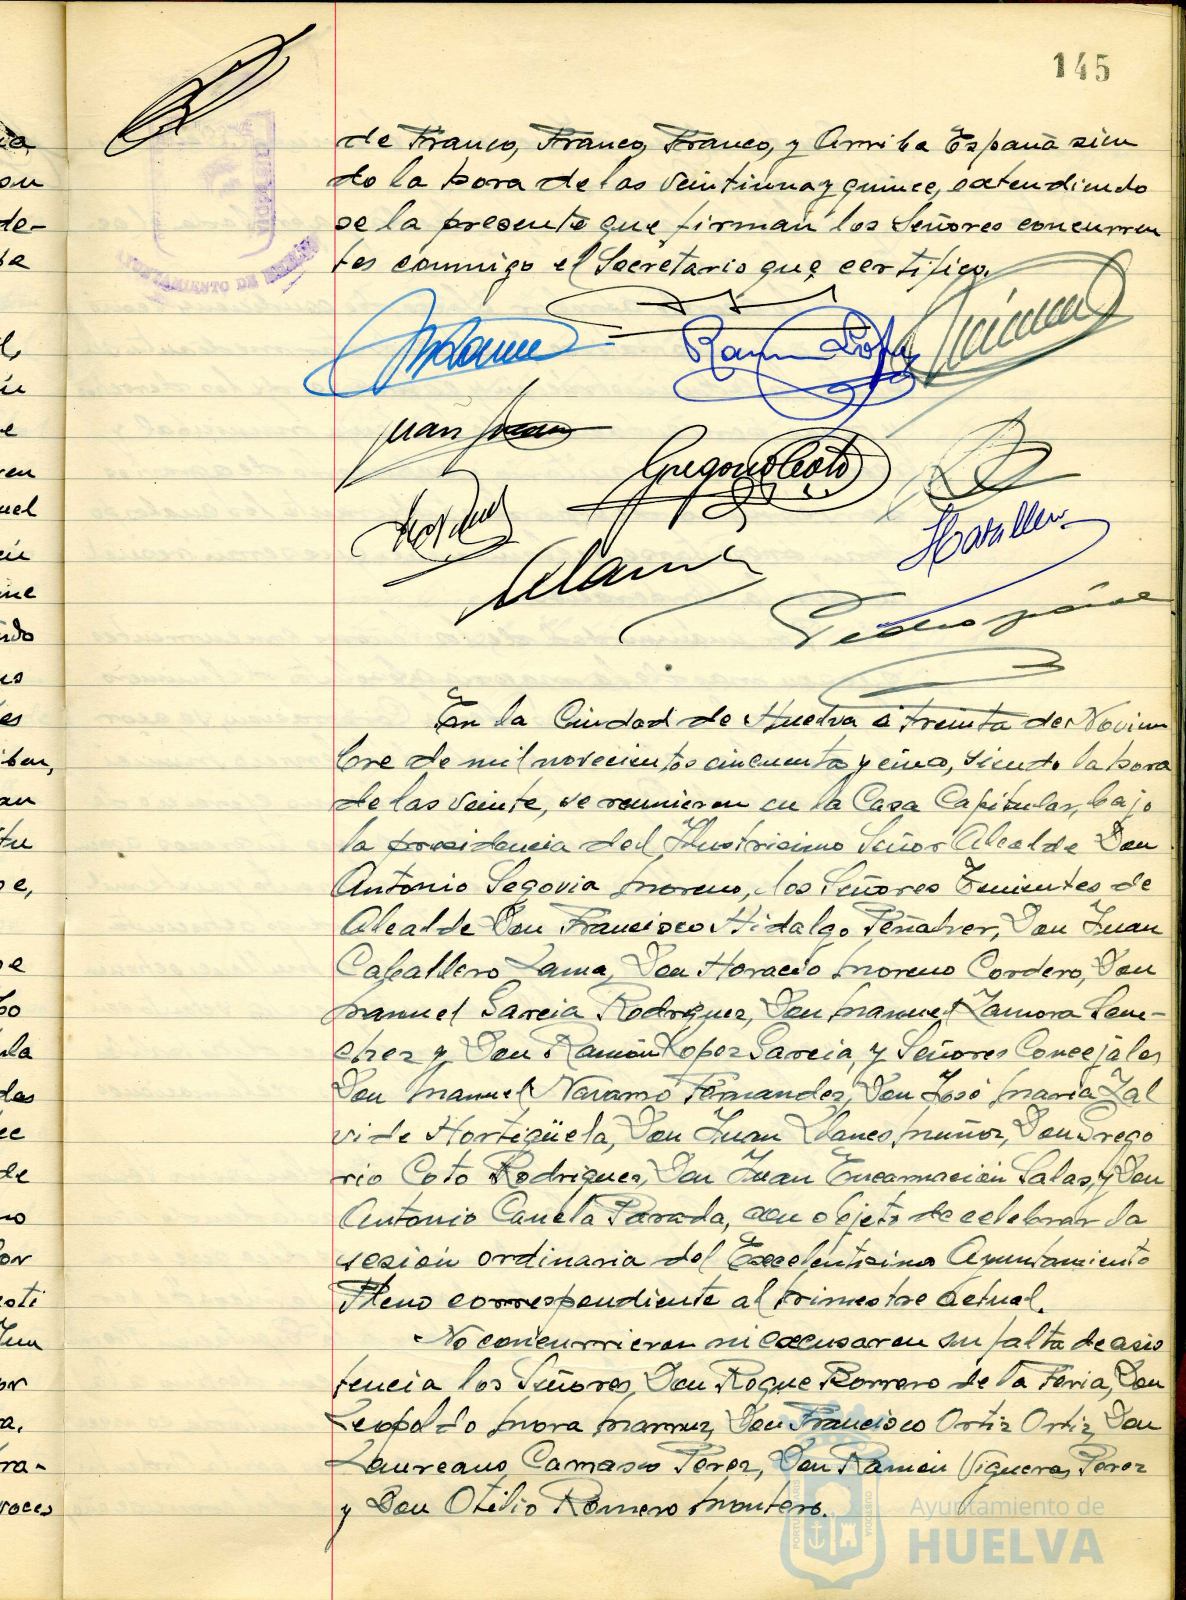 145
de Franco, Franco, Franco, y Arriba España sien
do la hora de las veintiuna y quince, extendiendo
se la presente que firman los Señores concurren
tes conmigo el Secretario que certifico.
Ramón López
Juan
Gregorio Coto
H Caballero
Pedro
En la Ciudad de Huelva a treinta de Noviem
bre de mil novecientos cincuenta y cinco, siendo la hora
de las veinte, se reunieron en la Casa Capitular, bajo
la presidencia del Ilustrisimo Señor Alcalde Don
Antonio Segovia Moreno, los Señores Tenientes de
Alcalde Don Francisco Hidalgo Peñalver, Don Juan
Caballero Lama, Don Horacio Moreno Cordero, Don
Manuel Garcia Rodriguez, Don Manuel Zamora San-
chez y Don Ramón Lopez Garcia, y Señores Concejales
Don Manuel Navarro Fernandez, Don José Maria Zal
vide Hortigüela, Don Juan Llanes Muñoz, Don Grego
rio Coto Rodriguez, Don Juan Encarnación Salas, y Don
Antonio Canela Parada, con objeto de celebrar la
sesión ordinaria del Excelentisimo Ayuntamiento
Pleno correspondiente al trimestre actual.
No concurrieron ni excusaron su falta de asis
tencia los Señores, Don Roque Borrero de la Feria, Don
Leopoldo Mora Marruz, Don Francisco Ortiz Ortiz, Don
Laureano Camasco Perez, Don Ramón Vigueras Perez
y Don Otilio Romero Montero.
Ayuntamiento de
HUELVA